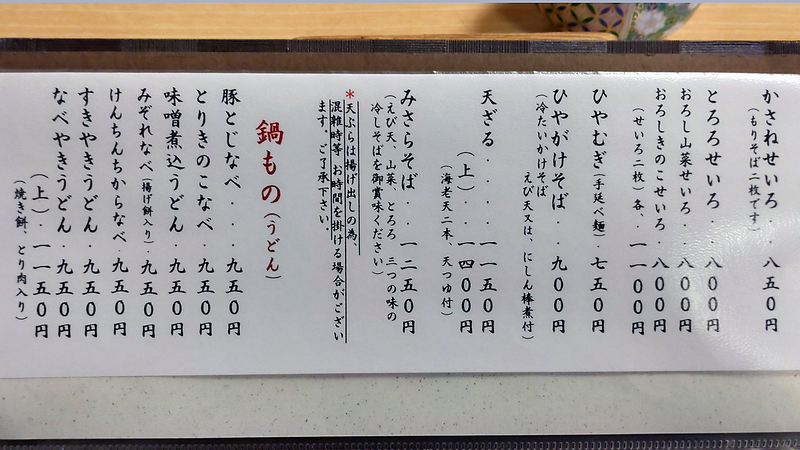 かさねせいろ・・八五〇円
（もりそば二枚です）
とろろせいろ・・八〇〇円
おろし山菜せいろ・八〇〇円
おろしきのこせいろ・八〇〇円
（せいろ二枚）各、・一一〇〇円
ひやむぎ（手延べ麺）・七五〇円
ひやがけそば・・九〇〇円
（冷たいかけそば
えび天又は、にしん棒煮付）
天ざる・・・・・一一五〇円
（上）・一四〇〇円
（海老天二本、天つゆ付）
みさらそば・・一二五〇円
（えび天、山菜、とろろ 三つの味の
冷しそばを御賞味ください）
＊天ぷらは揚げ出しの為
混雑時等、お時間を掛ける場合がござい
ます。ご了承下さい。
鍋もの（うどん）
豚とじなべ・・・九五〇円
とりきのこなべ・九五〇円
味噌煮込うどん・九五〇円
みぞれなべ（揚げ餅入り）・九五〇円
けんちんちからなべ・九五〇円
すきやきうどん・九五〇円
なべやきうどん・九五〇円
（上）・一一五〇円
（焼き餅、とり肉入り）